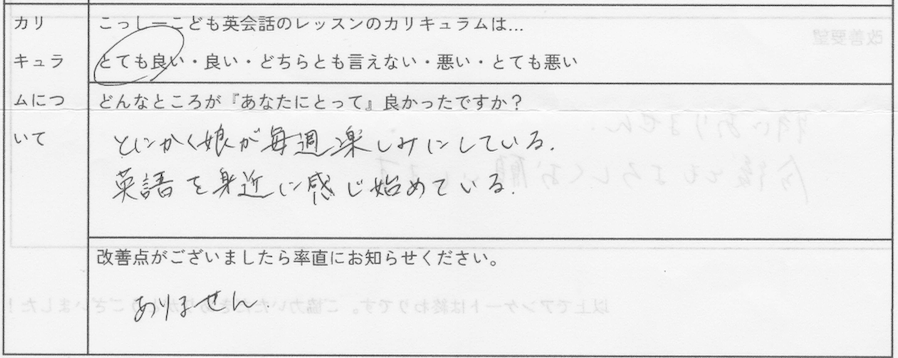 カリ
キュラ
ムにつ
いて
こっしーこども英会話のレッスンのカリキュラムは…
とても良い・良い・どちらとも言えない・悪い・とても悪い
どんなところが『あなたにとって』良かったですか？
とにかく娘が毎週楽しみにしている.
英語を身近に感じ始めている.
改善点がございましたら率直にお知らせください。
ありません.
改善要望
特にありません.
今後ともよろしくお願いします
以上でアンケートは終わりです。ご協力いただきありがとうございました！